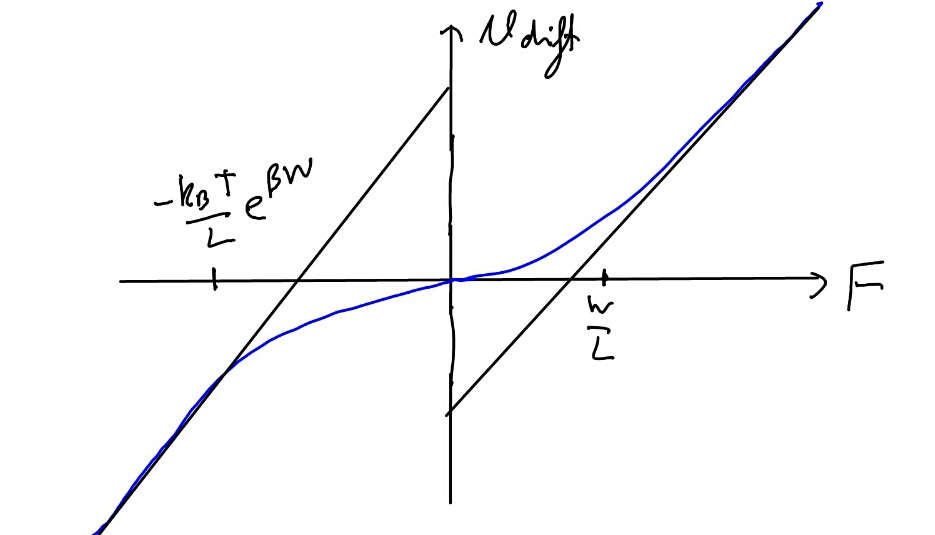 v_drift
-k_B T / L e^{βW}
F
W / L